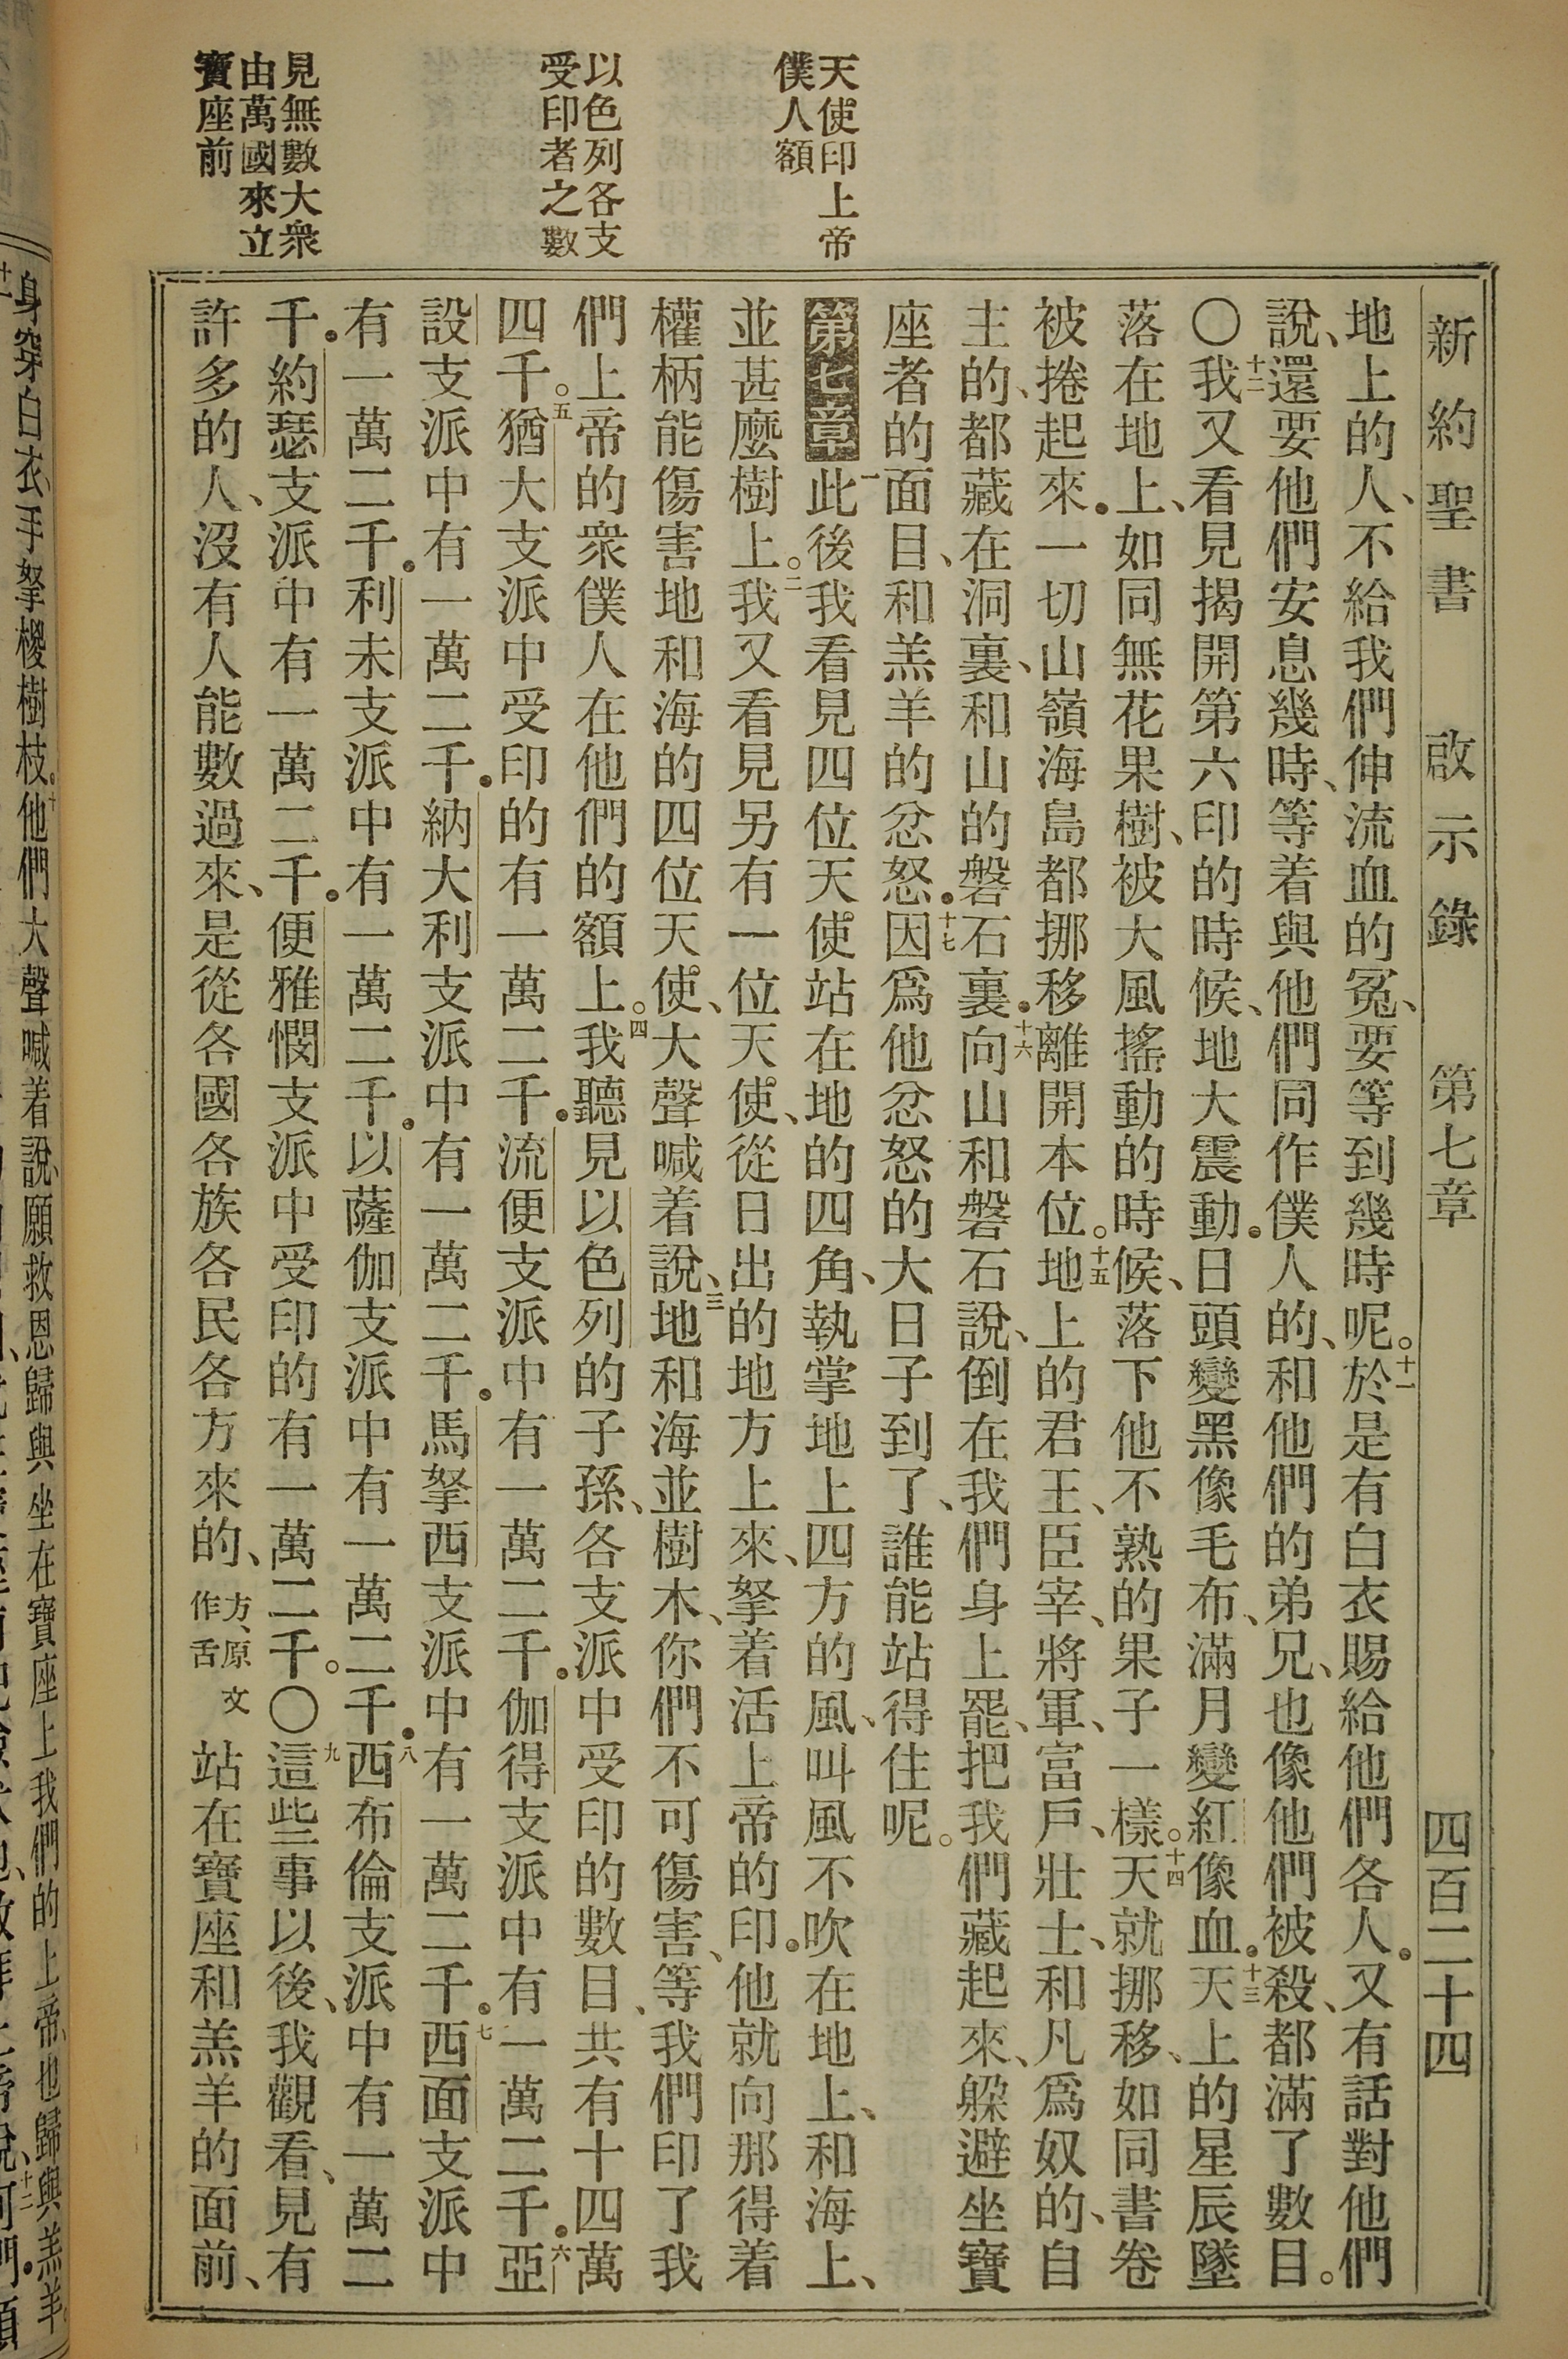 新約聖書 啟示錄 第七章 四百二十四
天使印上帝
僕人額
以色列各支
受印者之數
見無數大衆
由萬國來立
寶座前
地上的人、不給我們伸流血的冤、要等到幾時呢。十一於是有白衣賜給他們各人．又有話對他們
說、還要他們安息幾時、等着與他們同作僕人的、和他們的弟兄、也像他們被殺、都滿了數目。
〇十二我又看見揭開第六印的時候、地大震動．日頭變黑像毛布、滿月變紅像血．十三天上的星辰墜
落在地上、如同無花果樹、被大風搖動的時候、落下他不熟的果子一樣。十四天就挪移、如同書卷
被捲起來．一切山嶺海島都挪移離開本位。十五地上的君王、臣宰、將軍、富戶、壯士、和凡爲奴的、自
主的、都藏在洞裏、和山的磐石裏．十六向山和磐石說、倒在我們身上罷、把我們藏起來、躱避坐寶
座者的面目、和羔羊的忿怒．十七因爲他忿怒的大日子到了、誰能站得住呢。
第七章 一此後我看見四位天使站在地的四角、執掌地上四方的風、叫風不吹在地上、和海上、
並甚麼樹上。二我又看見另有一位天使、從日出的地方上來、拏着活上帝的印．他就向那得着
權柄能傷害地和海的四位天使、大聲喊着說、三地和海並樹木、你們不可傷害、等我們印了我
們上帝的衆僕人在他們的額上。四我聽見以色列的子孫、各支派中受印的數目、共有十四萬
四千。五猶大支派中受印的有一萬二千．流便支派中有一萬二千．伽得支派中有一萬二千．六亞
設支派中有一萬二千．納大利支派中有一萬二千．馬拏西支派中有一萬二千．七西面支派中
有一萬二千．利未支派中有一萬二千．以薩伽支派中有一萬二千．八西布倫支派中有一萬二
千．約瑟支派中有一萬二千．便雅憫支派中受印的有一萬二千。〇九這些事以後、我觀看、見有
許多的人、沒有人能數過來、是從各國各族各民各方來的、方、原文作舌站在寶座和羔羊的面前、
身穿白衣、手拏椶樹枝．十他們大聲喊着說、願救恩歸與坐在寶座上我們的上帝、也歸與羔羊。